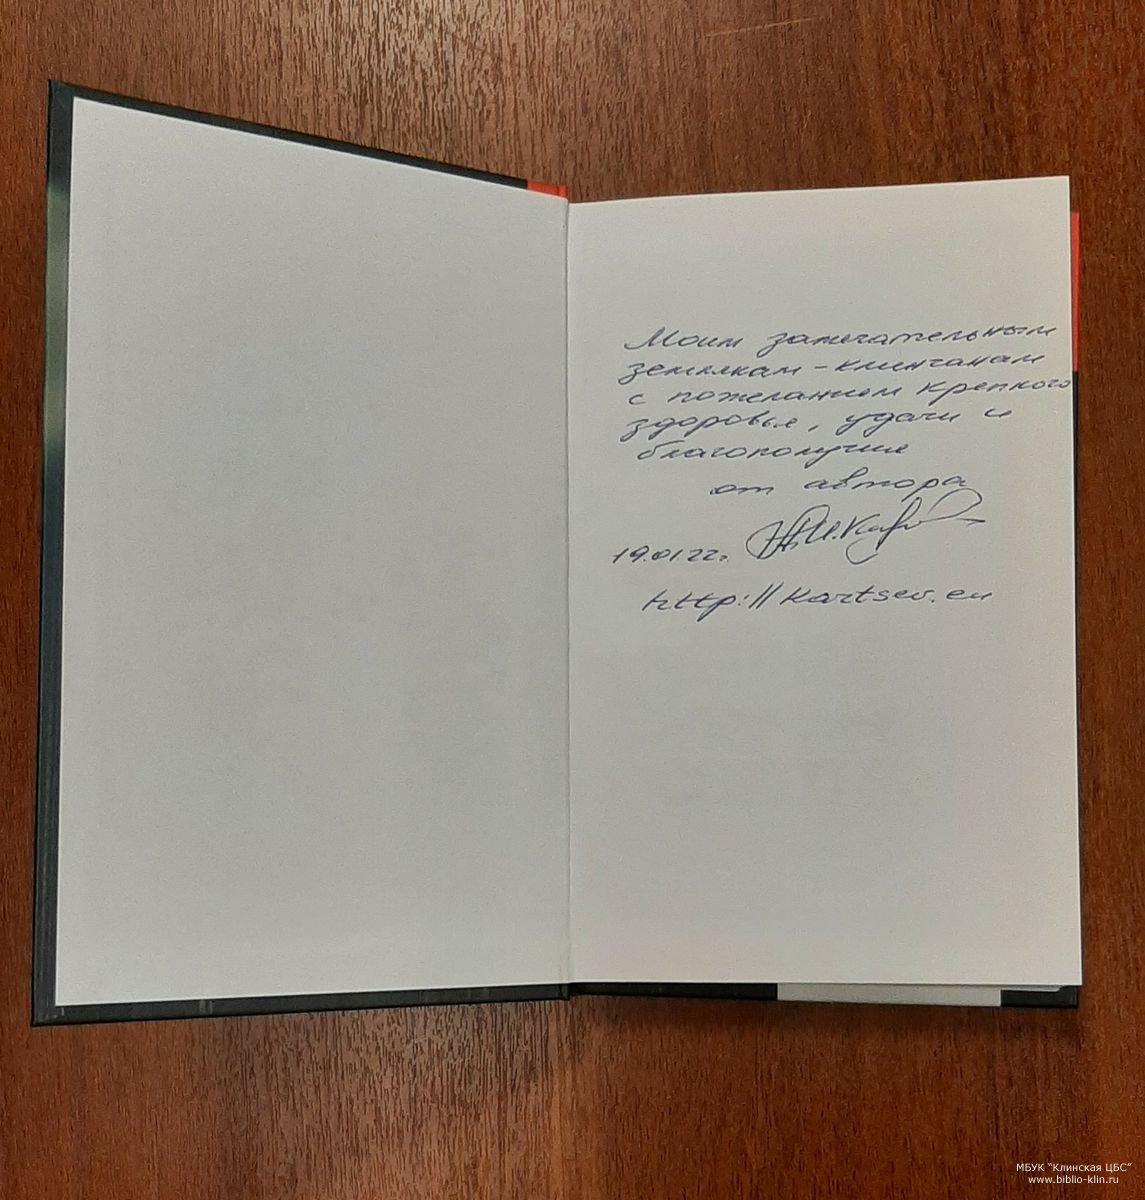 Моим замечательным
землякам - клинчанам
с пожеланием крепкого
здоровья, удачи и
благополучия
от автора
19.01.22г.
http://kartsev.eu
МБУК "Клинская ЦБС"
www.biblio-klin.ru